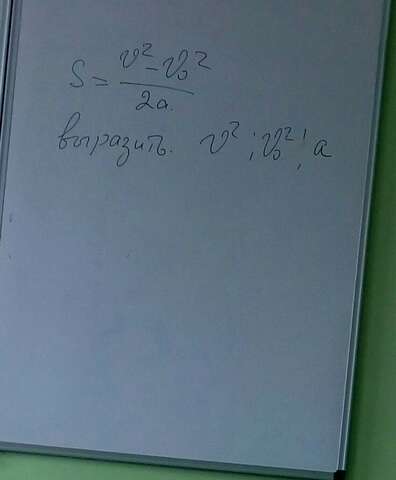 S = (v² - v₀²) / 2a.
выразить. v² ; v₀² ; a